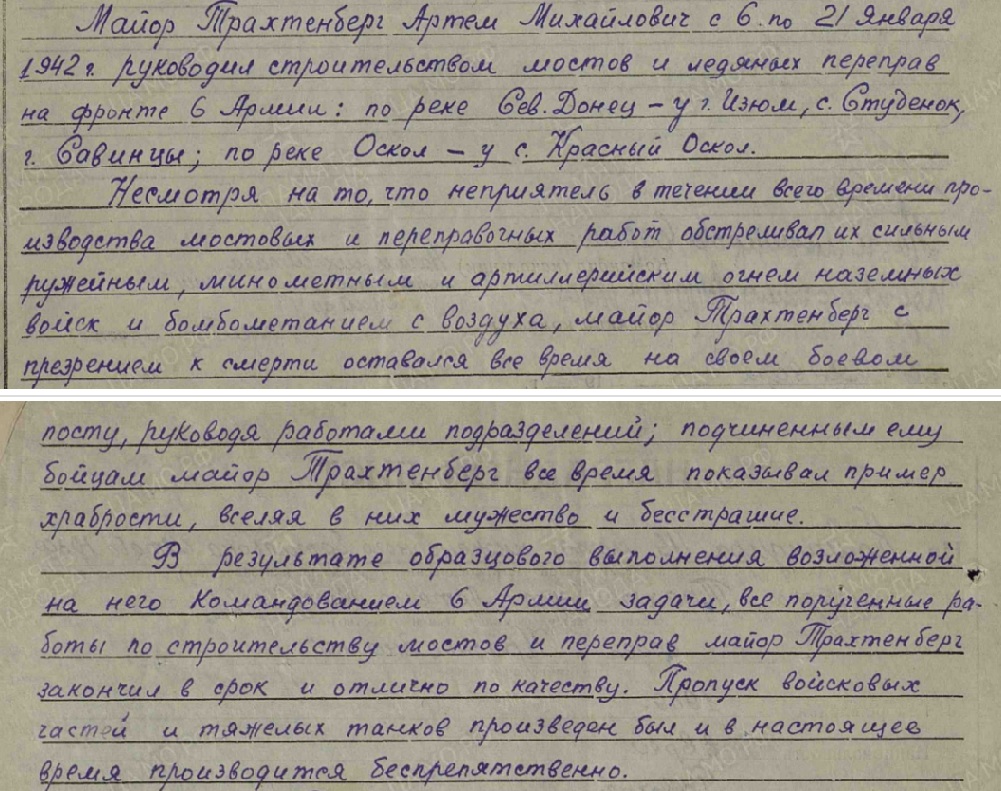 Майор Трахтенберг Артем Михайлович с 6 по 21 Января
1942 г. руководил строительством мостов и ледяных переправ
на фронте 6 Армии: по реке Сев. Донец – у г. Изюм, с. Студенок,
г. Савинцы; по реке Оскол – у с. Красный Оскол.
Несмотря на то, что неприятель в течении всего времени про-
изводства мостовых и переправочных работ обстреливал их сильным
ружейным, минометным и артиллерийским огнем наземных
войск и бомбометанием с воздуха, майор Трахтенберг с
презрением к смерти оставался все время на своем боевом
посту, руководя работами подразделений; подчиненным ему
бойцам майор Трахтенберг все время показывал пример
храбрости, вселяя в них мужество и бесстрашие.
В результате образцового выполнения возложенной
на него Командованием 6 Армии задачи, все порученные ра-
боты по строительству мостов и переправ майор Трахтенберг
закончил в срок и отлично по качеству. Пропуск войсковых
частей и тяжелых танков произведен был и в настоящее
время производится беспрепятственно.